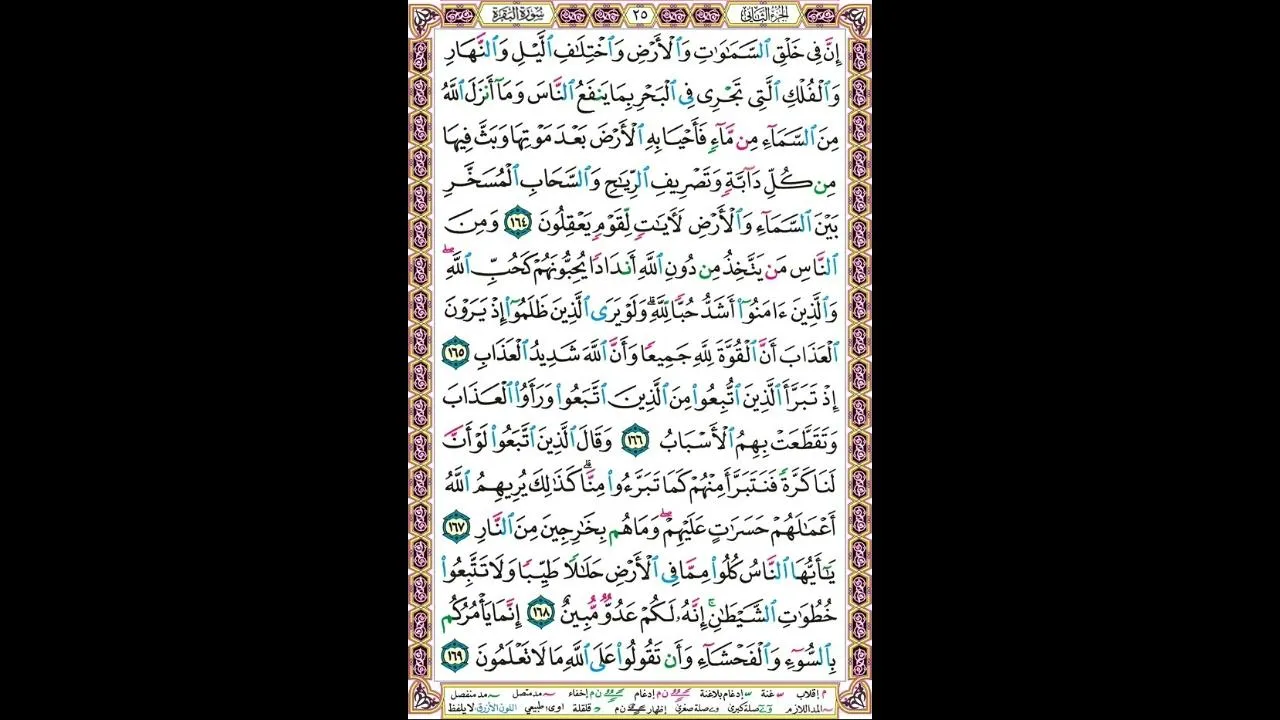 الجزء الثاني ٢٥ سورة البقرة
إِنَّ فِي خَلْقِ ٱلسَّمَٰوَٰتِ وَٱلْأَرْضِ وَٱخْتِلَٰفِ ٱلَّيْلِ وَٱلنَّهَارِ
وَٱلْفُلْكِ ٱلَّتِي تَجْرِي فِي ٱلْبَحْرِ بِمَا يَنفَعُ ٱلنَّاسَ وَمَآ أَنزَلَ ٱللَّهُ
مِنَ ٱلسَّمَآءِ مِن مَّآءٍ فَأَحْيَا بِهِ ٱلْأَرْضَ بَعْدَ مَوْتِهَا وَبَثَّ فِيهَا
مِن كُلِّ دَآبَّةٍ وَتَصْرِيفِ ٱلرِّيَٰحِ وَٱلسَّحَابِ ٱلْمُسَخَّرِ
بَيْنَ ٱلسَّمَآءِ وَٱلْأَرْضِ لَأٓيَٰتٍ لِّقَوْمٍ يَعْقِلُونَ ١٦٤ وَمِنَ
ٱلنَّاسِ مَن يَتَّخِذُ مِن دُونِ ٱللَّهِ أَندَادًا يُحِبُّونَهُمْ كَحُبِّ ٱللَّهِۖ
وَٱلَّذِينَ ءَامَنُوٓا۟ أَشَدُّ حُبًّا لِّلَّهِۗ وَلَوْ يَرَى ٱلَّذِينَ ظَلَمُوٓا۟ إِذْ يَرَوْنَ
ٱلْعَذَابَ أَنَّ ٱلْقُوَّةَ لِلَّهِ جَمِيعًا وَأَنَّ ٱللَّهَ شَدِيدُ ٱلْعَذَابِ ١٦٥
إِذْ تَبَرَّأَ ٱلَّذِينَ ٱتُّبِعُوا۟ مِنَ ٱلَّذِينَ ٱتَّبَعُوا۟ وَرَأَوُا۟ ٱلْعَذَابَ
وَتَقَطَّعَتْ بِهِمُ ٱلْأَسْبَابُ ١٦٦ وَقَالَ ٱلَّذِينَ ٱتَّبَعُوا۟ لَوْ أَنَّ
لَنَا كَرَّةً فَنَتَبَرَّأَ مِنْهُمْ كَمَا تَبَرَّءُوا۟ مِنَّاۗ كَذَٰلِكَ يُرِيهِمُ ٱللَّهُ
أَعْمَٰلَهُمْ حَسَرَٰتٍ عَلَيْهِمْۖ وَمَا هُم بِخَٰرِجِينَ مِنَ ٱلنَّارِ ١٦٧
يَٰٓأَيُّهَا ٱلنَّاسُ كُلُوا۟ مِمَّا فِي ٱلْأَرْضِ حَلَٰلًا طَيِّبًا وَلَا تَتَّبِعُوا۟
خُطُوَٰتِ ٱلشَّيْطَٰنِۚ إِنَّهُۥ لَكُمْ عَدُوٌّ مُّبِينٌ ١٦٨ إِنَّمَا يَأْمُرُكُم
بِٱلسُّوٓءِ وَٱلْفَحْشَآءِ وَأَن تَقُولُوا۟ عَلَى ٱللَّهِ مَا لَا تَعْلَمُونَ ١٦٩
م إقلاب غنة إدغام بلاغنة ن م إدغام ن م إخفاء مد متصل مد منفصل
المد اللازم صلة كبرى صلة صغرى إظهار ن م قلقلة اوى: طبيعي اللون الأزرق لا يلفظ